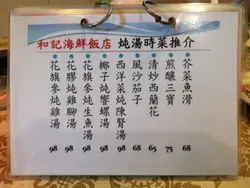 和記海鮮飯店 炖湯時菜推介
芥菜魚滑 68
煎釀三寶 75
清炒西蘭花 65
風沙茄子 68
西洋菜炖陳賢湯 98
椰子炖響螺湯 98
花旗參炖生魚湯 98
花膠炖雞腳湯 98
花旗參炖雞湯 98